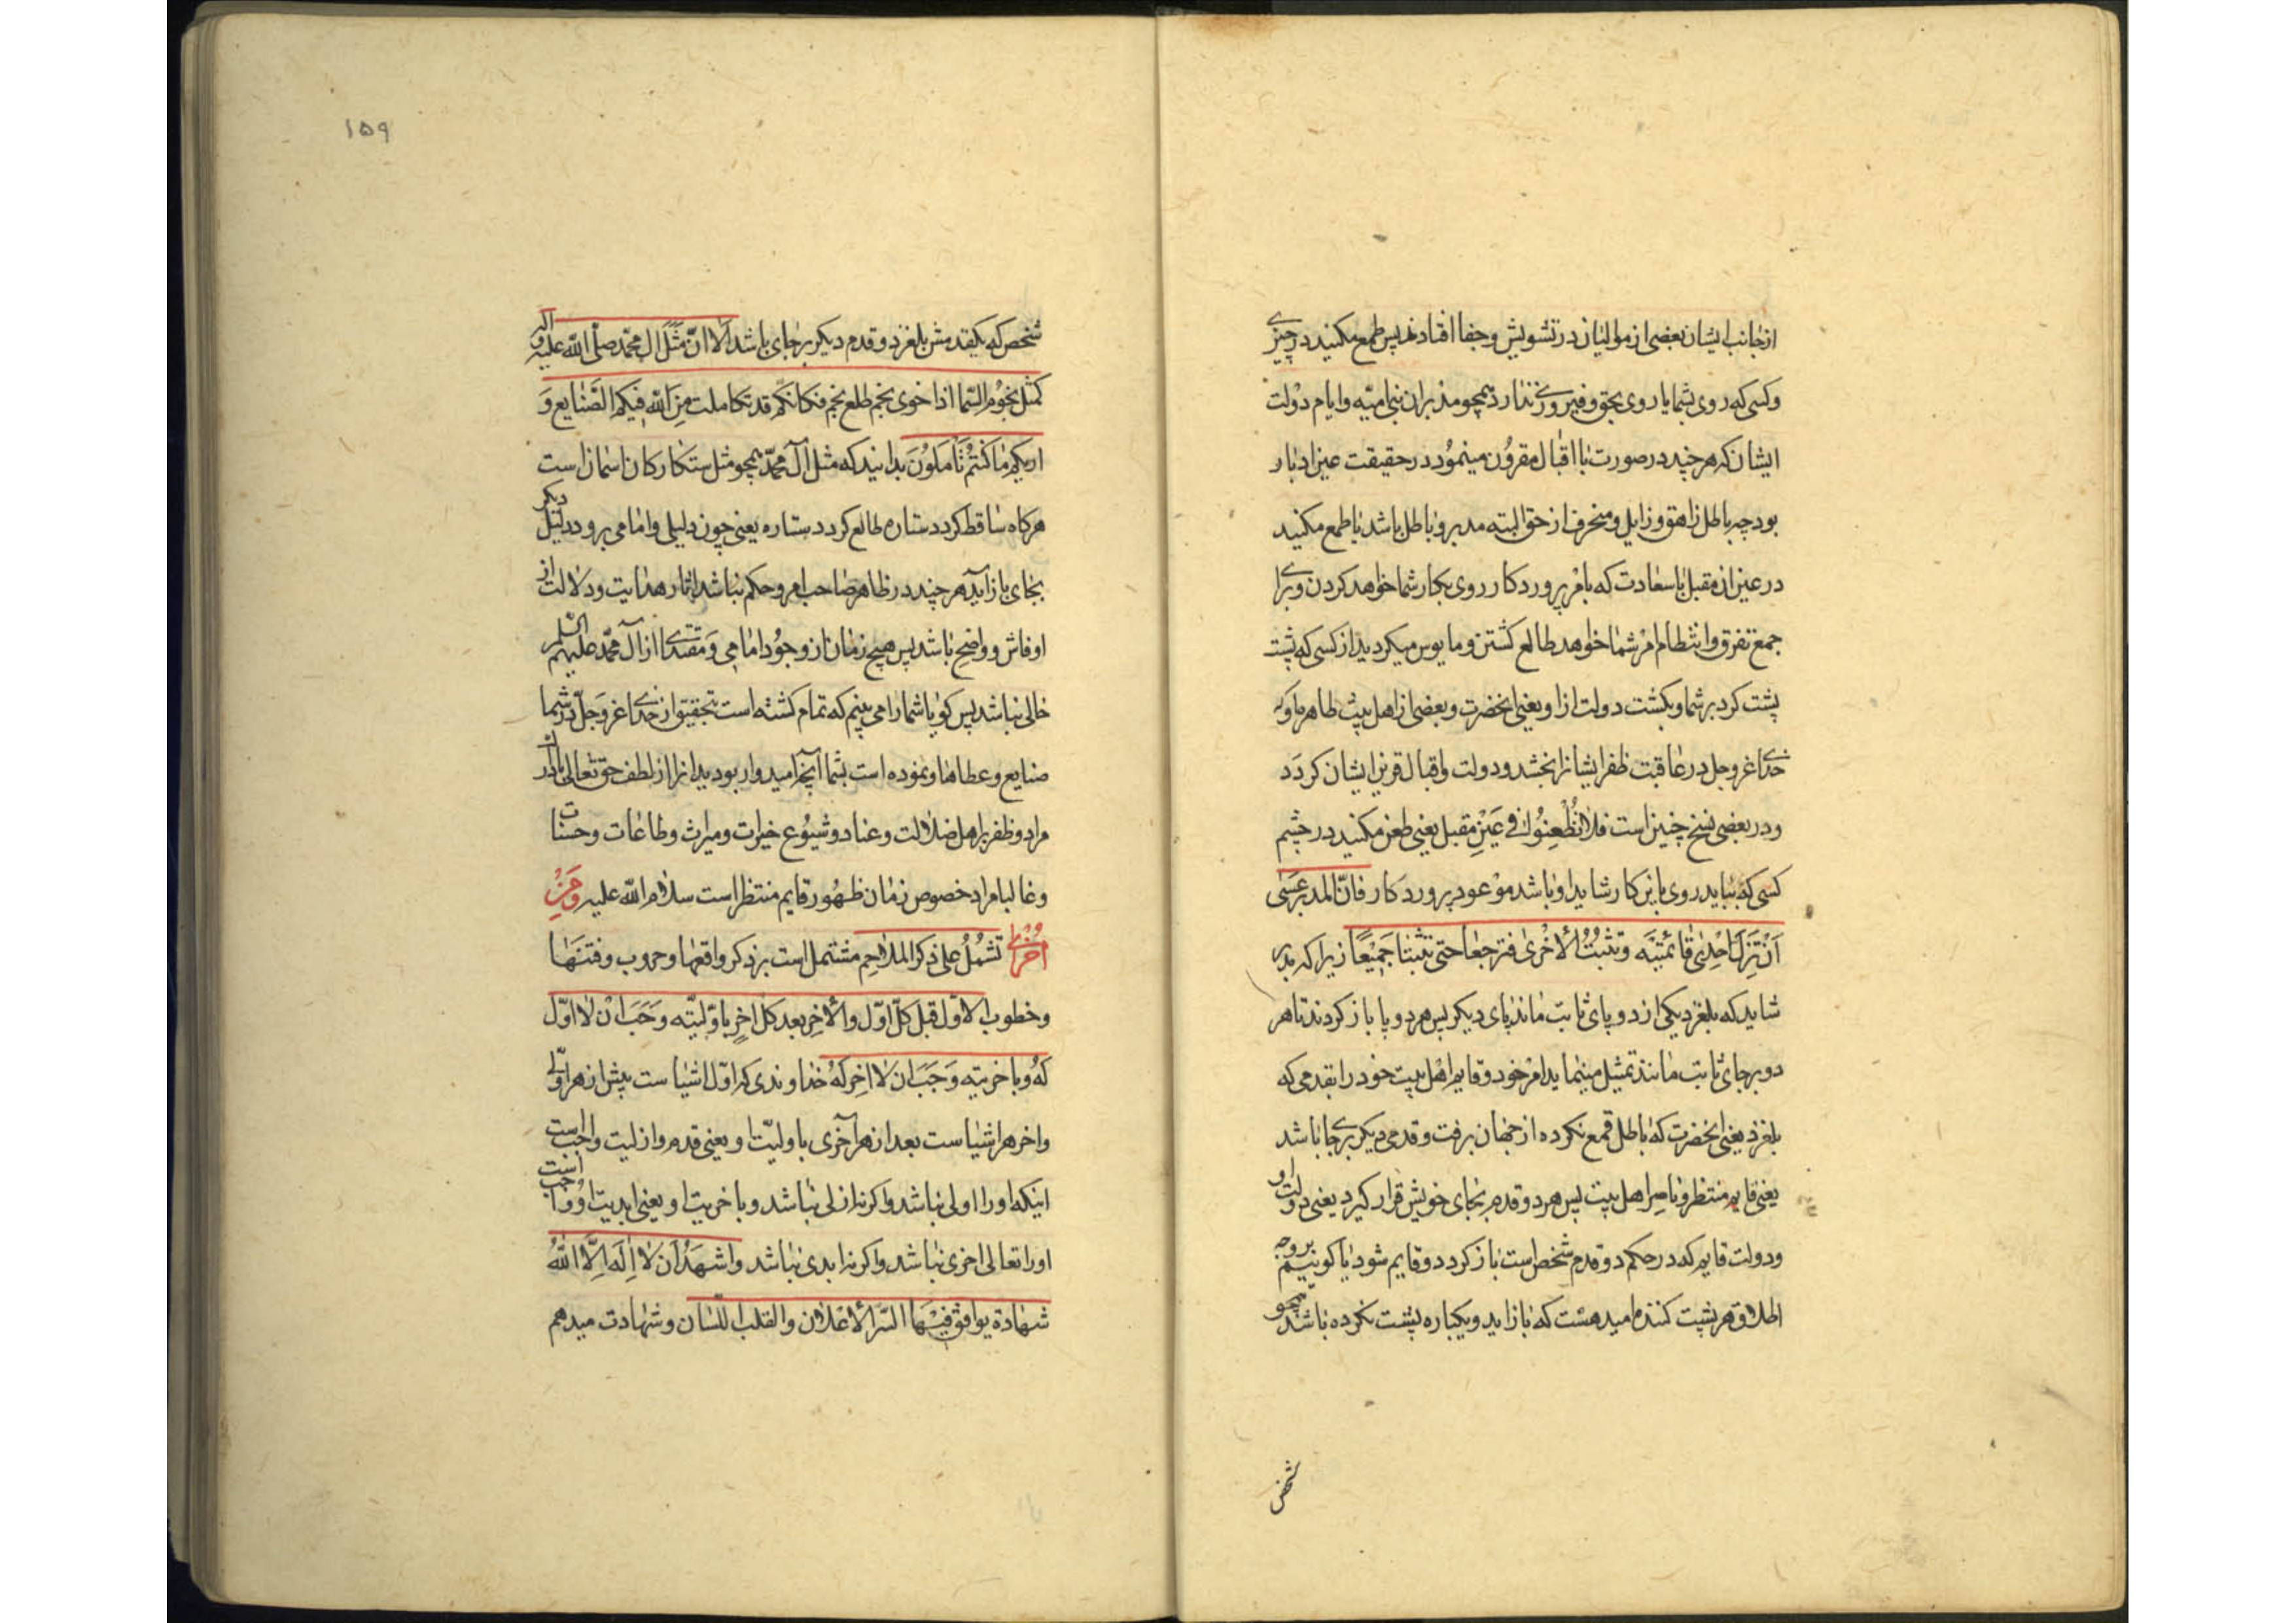 ازجانب ایشان بعضی از موالیان در تشویش و جفا افتادند پس طمع مکنید در چیزی
و کسی که روی بشما یا روی بحق و فیروزی ندارد همچو مدبران بنی امیّه و ایام دولت
ایشان که هر چند در صورت با اقبال مقرون مینمود در حقیقت عین ادبار
بود چه باطل زاهق و زایل و منحرف از حق البته مدبر و باطل باشد یا طمع مکنید
در عین آن مقبل با سعادت که بامر پروردکار روی بکار شما خواهد کردن و برای
جمع تفرق و انتظام امر شما خواهد طالع کشتن و مایوس میکردید از کسی که پشت
پشت کرد بر شما و بکشت دولت از او یعنی انحضرت و بعضی از اهل بیت طاهر او که
خدای عزوجل در عاقبت ظفر ایشانرا بخشد و دولت و اقبال قرین ایشان کردد
و در بعضی نسخ چنین است فلا تَطْعِنُوا فی عَیْنِ مقبل یعنی طعن مکنید در چشم
کسی که بباید روی باین کار شاید او باشد موعود پروردکار فانّ المدبر عَسَی
اَنْ تَزِلَّ اِحْدیٰ قائمتَیْه و تثبتُ الأُخْریٰ فترجعا حتی تثبتا جَمِیْعًا زیرا که مدبر
شاید که بلغزد یکی از دو پای ثابت ماند پای دیکر پس هر دو پا باز کردند تا هر
دو برجای ثابت مانند تمثیل مینماید امر خود و قایم اهل بیت خود را بقدمی که
بلغزد یعنی انحضرت که باطل قمع نکرده از جهان برفت و قدمی دیکر برجا باشد
یعنی قایم منتظر و ناصر اهل بیت پس هر دو قدم بجای خویش قرار کیرد یعنی دولت او
و دولت قایم که در حکم دو قدم شخص است باز کردد و قایم شود یا کوییم بر وجه
اطلاق هر پشت کننده امید هست که باز آید و یکباره پشت نکرده باشد همچو
شخص
۱۵۹
شخص که یکقدمش بلغزد و قدم دیکر برجای باشد اَلا انّ مَثَلَ ال محمّد صلّی اللّه علیه و اله
کمثل نجُومِ السّما اذا خوی نجم طلع نجم فکانّکم قد تکاملت مِنَ اللّه فیکم الصّنایع وَ
اریکم ما کنتُمْ تَأملُوْنَ بدانید که مثل آل محمّد همچو مثل ستکارکان اسمان است
هرکاه ساقط کردد ستاره طالع کردد ستاره یعنی چون دلیلی و امامی برود دلیل دیکر
بجای باز آید هر چند در ظاهر صاحب امر و حکم نباشد اثار هدایت و دلالت از
او فاش و واضح باشد پس هیچ زمان از وجود امامی وَ مقتدای از آل محمّد علیهم السّلم
خالی نباشد پس کویا شما را می بینم که تمام کشته است بتحقیق از خدای عزوجلّ در شما
صنایع و عطاها و نموده است بشما آنچه امیدوار بودید انرا از لطف حق تعالی
مراد و ظفر بر اهل ضلالت و عناد و شیُوع خیرات و میراث و طاعات و حسنات
و غالبا مراد خصوص زمان ظهُور قایم منتظر است سلام اللّه علیه وَ مِنْ
اُخْریٰ تشمُلُ علی ذکر الملاحِم مشتمل است بر ذکر واقعها و حروب و فتنَهَا
و خطوب الاوّل قبل کلّ اوّل والأخِر بعد کل اخِرٍ باوّلیّته وَجَبَ ان لا اوّل
لَهُ و باخریته وَجَبَ ان لا اخِر لَهُ خداوندی که اوّل اشیاست پیش از هر اوّلی
و اخر هر اشیاست بعد از هر آخری باولیّت او یعنی قدم و ازلیت واجبست
اینکه او را اولی نباشد و اکر نه ازلی نباشد و باخریت او یعنی ابدیت او واجبست
او را تعالی اخری نباشد و اکر نه ابدی نباشد و اشهَدُ اَن لا اِلَهَ اِلَّا اللّٰهُ
شهادة یوافق فِیْهَا السّر الأعْلان والقلب اللّسان و شهادت میدهم